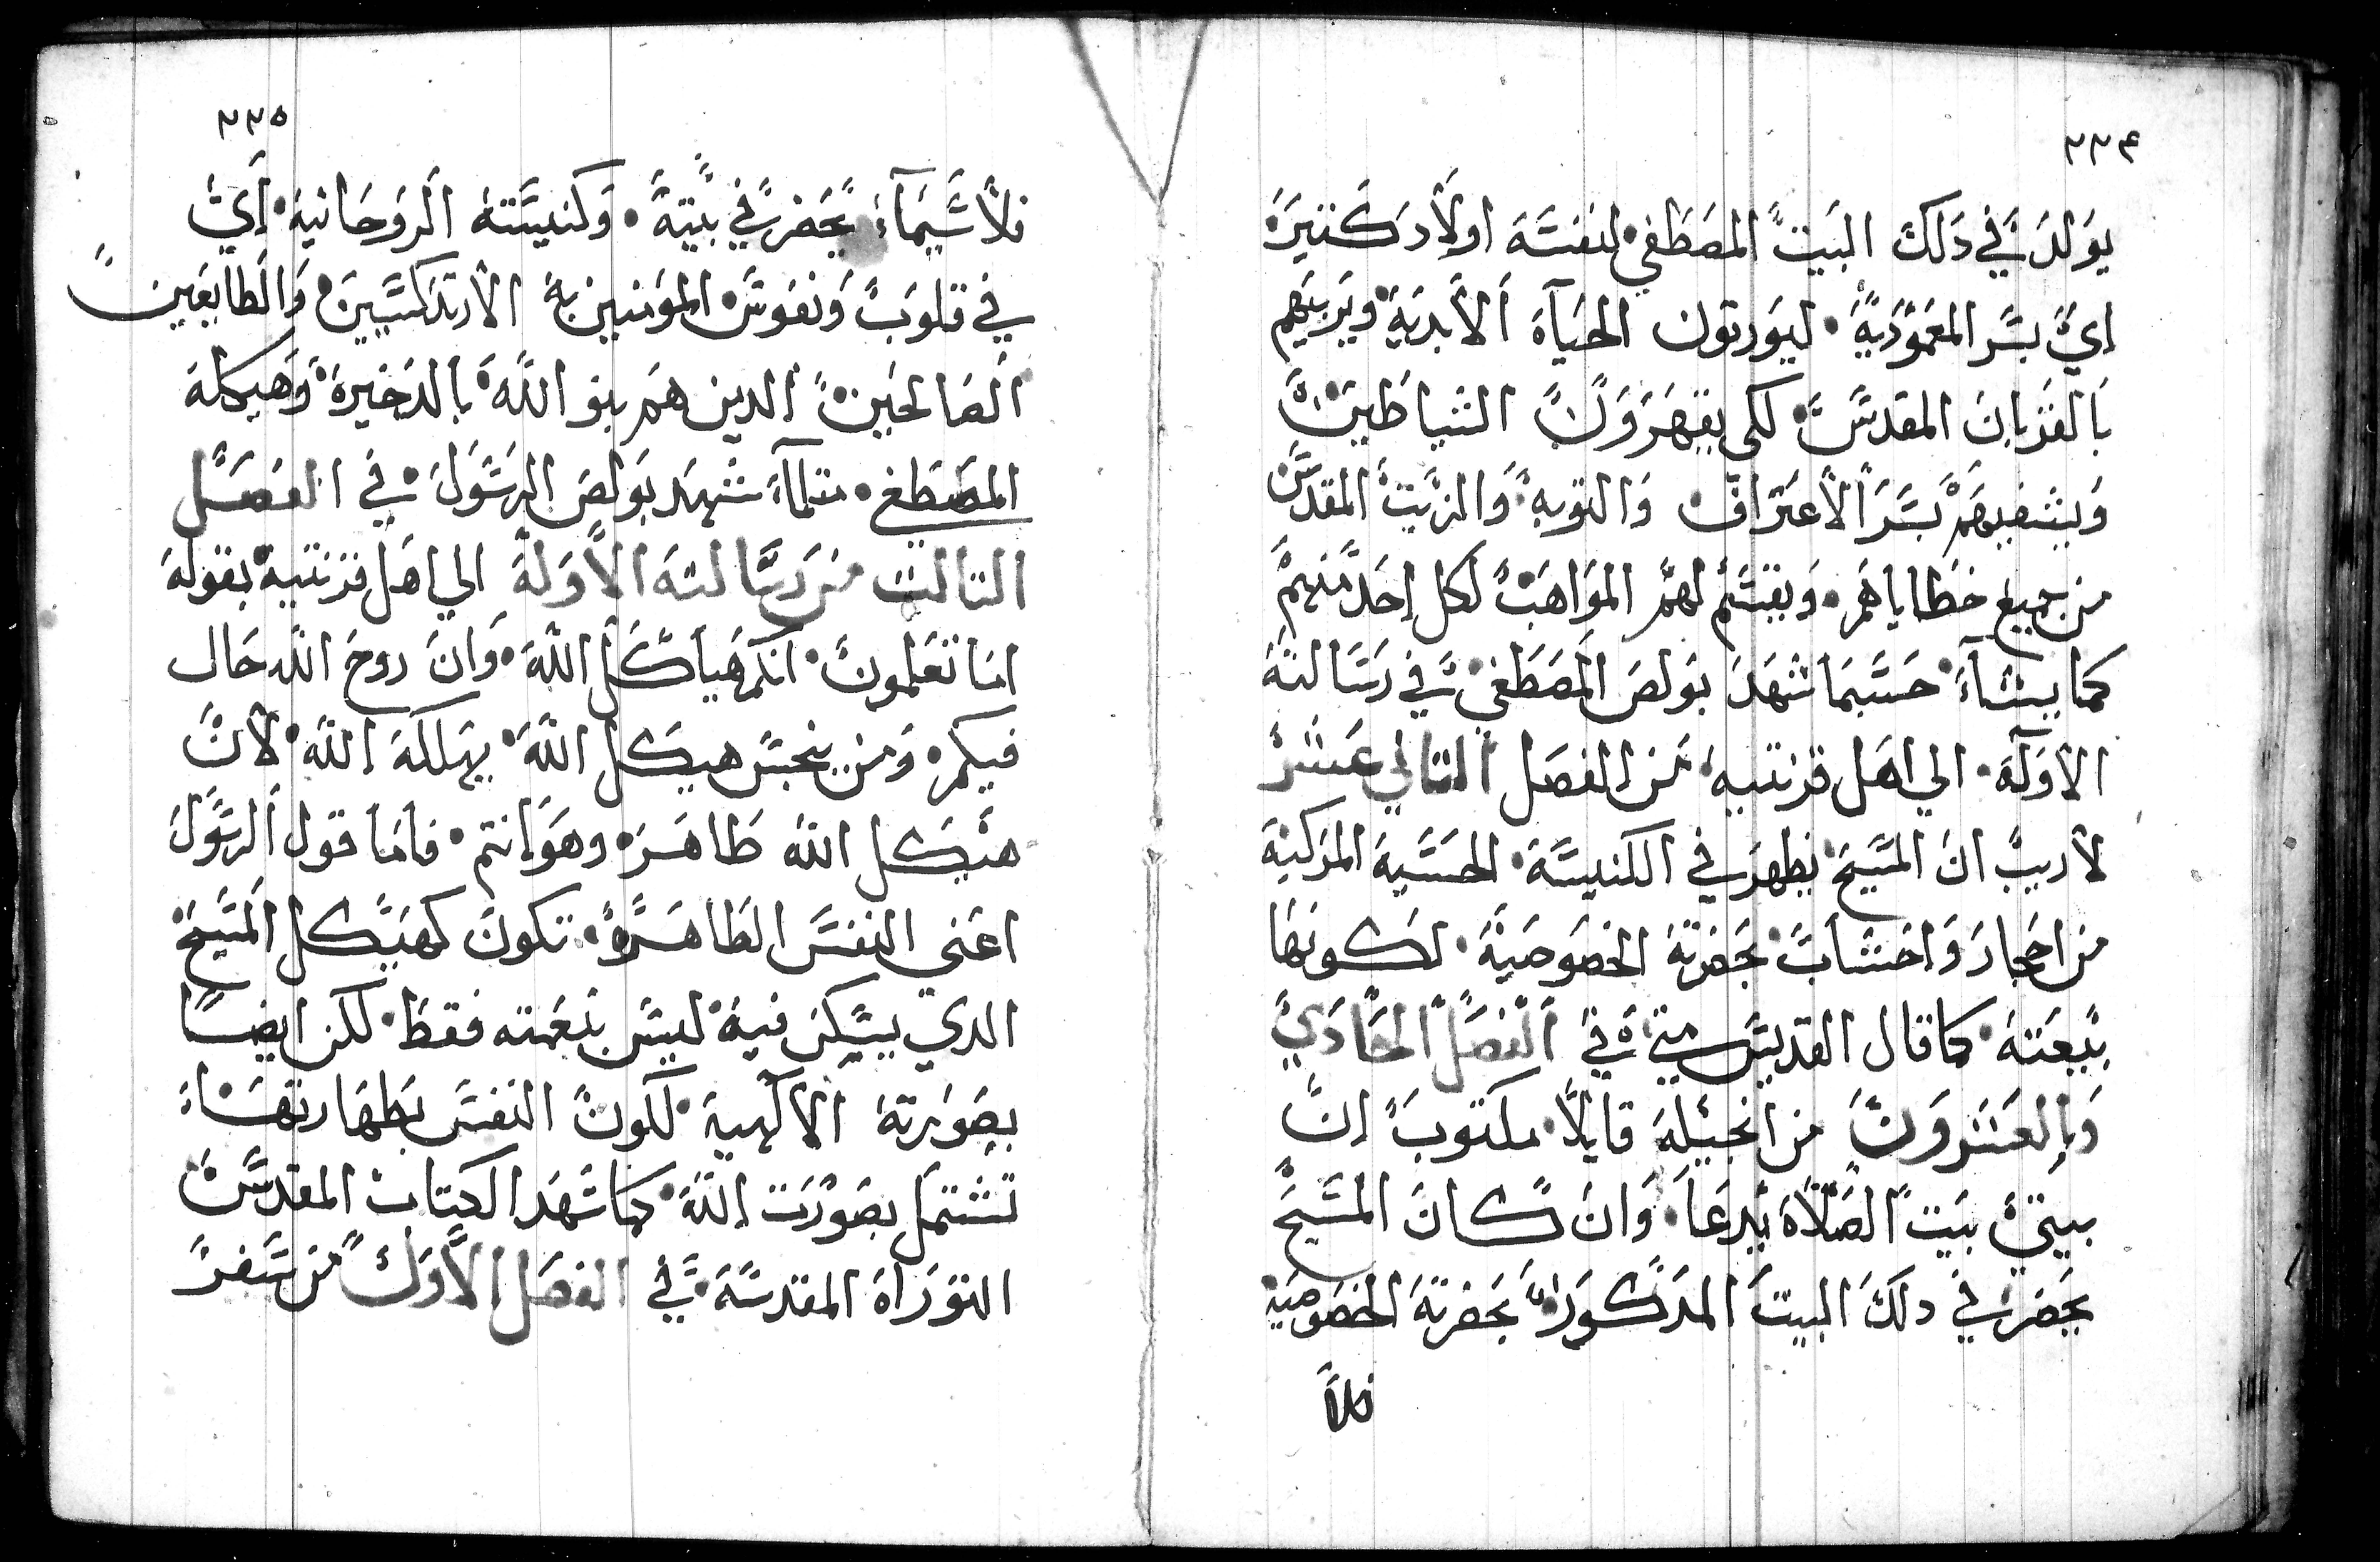 ٢٣٤
يولد في دلك البيت المصطفي لنفسه اولاد كتيره
اي بسر المعمودية ليورتون الحياة الابدية ويربيهم
بالقربان المقدس لكي يقهرون الشياطين
ويشفيهم بسر الاعتراف والتوبه والزيت المقدس
من جميع خطاياهم ويقسم لهم المواهب لكل احد منهم
كما يشاء حسبما شهد بولص المصطفي في رسالته
الاوله الي اهل قرنتيه من الفصل التاني عشر
لا ريب ان المسيح يظهر في الكنيسة الحسية المركبة
من احجار واخشاب بحضرته الخصوصية لكونها
بيعته كما قال القديس متي في الفصل الحادي
والعشرون من انجيله قايلا مكتوب ان
بيتي بيت الصلاة يدعا وان كان المسيح
بحضر في دلك البيت المدكور بحضرته الخصوصية
فلا
٢٣٥
فلاسيماء بحضر في بيته وكنيسته الروحانية اي
في قلوب ونفوس المومنين به الارتدكسيين والطايعين
الصالحين الدين هم بنو الله بالدخيرة وهيكله
المصطفي متلماء شهد بولص الرسول في الفصل
التالت من رسالته الاولة الي اهل قرنتية بقوله
اما تعلمون انكم هياكل الله وان روح الله حال
فيكم ومن ينجس هيكل الله يهلكه الله لان
هيكل الله طاهر وهو انتم فاما قول الرسول
اعني النفس الطاهرة تكون كهيكل المسيح
الدي يسكن فيه ليس بنعمته فقط لكن ايضا
بصورته الالهية لكون النفس بطهارتها
تشتمل بصورت الله كما شهد الكتاب المقدس
التوراة المقدسة في الفصل الاول من سفر